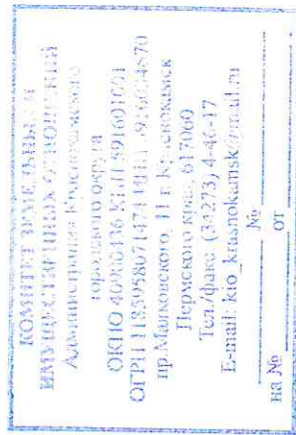 КОМИТЕТ ЗЕМЕЛЬНЫХ И
ИМУЩЕСТВЕННЫХ ОТНОШЕНИЙ
Администрации Краснокамского
городского округа
ОКПО 40960436 КПП 591601001
ОГРН 1185958071474 ИНН 5916034670
пр.Маяковского, 11 г. Краснокамск
Пермского края, 617060
Тел./факс (34273) 4-46-17
E-mail: kio_krasnokamsk@mail.ru
№
на № от